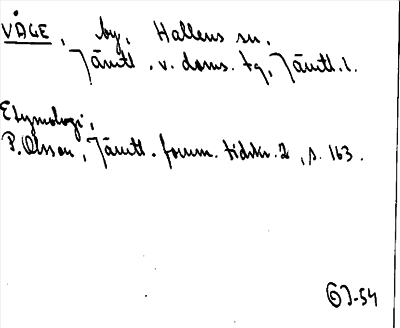 VÅGE, by, Hallens sn.
Jämtl. v. doms. tg, Jämtl. l.
Etymologi,
P. Olsson, Jämtl. fornm. tidskr. 2, s. 163.
J-54